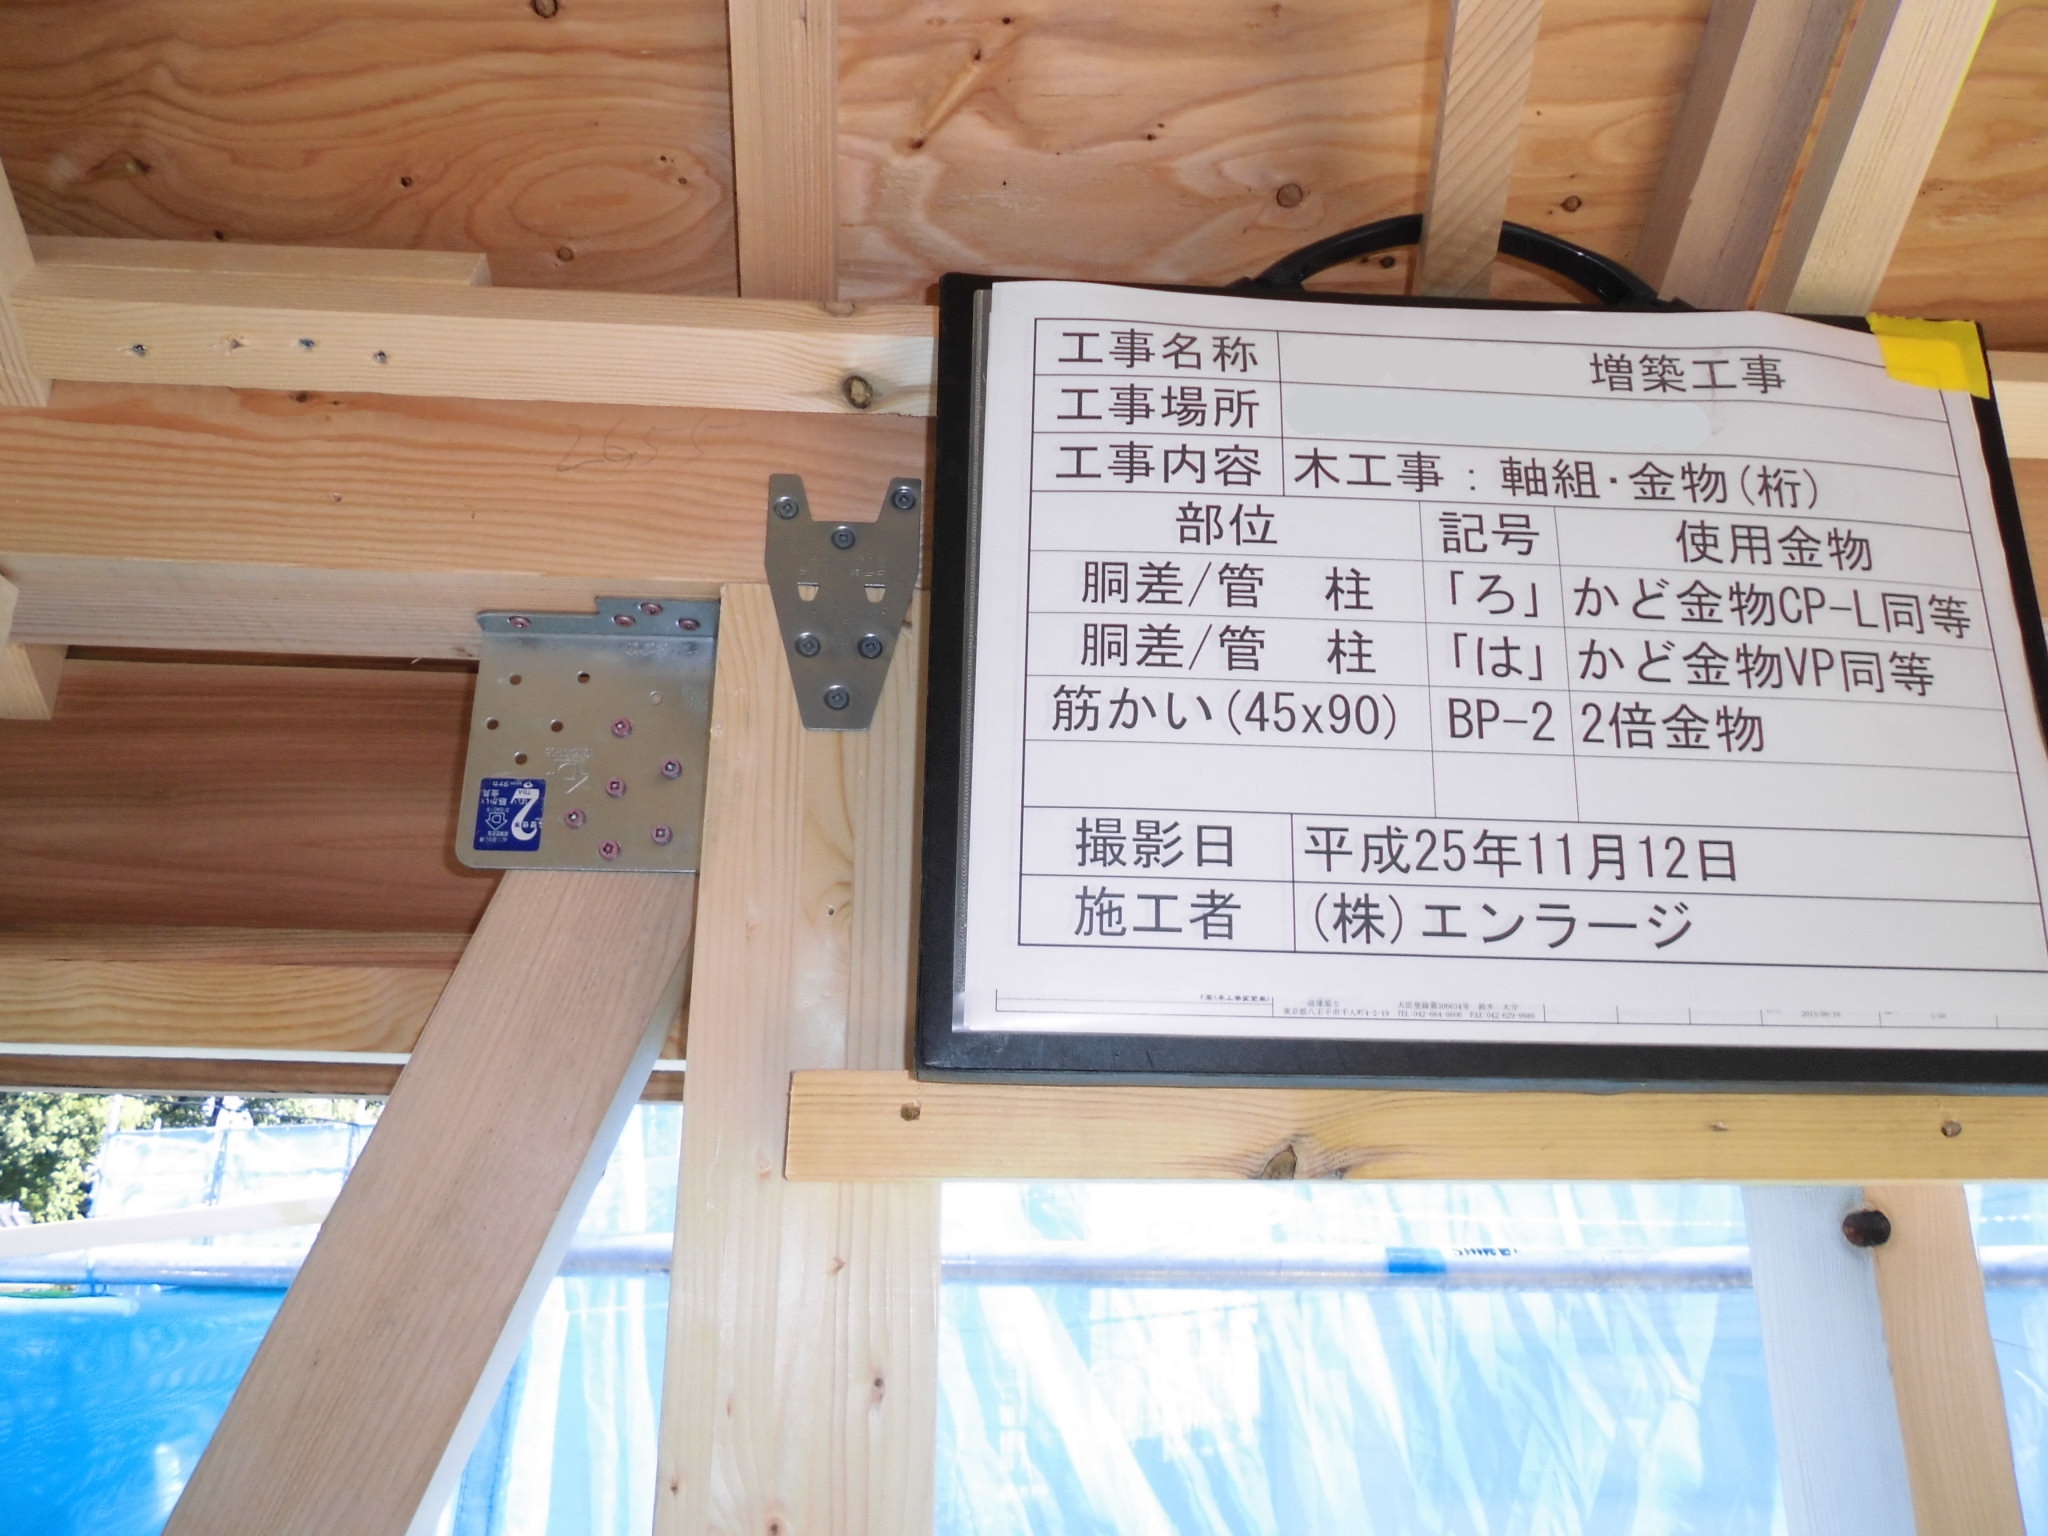 2655
工事名称 増築工事
工事場所
工事内容 木工事：軸組・金物(桁)
部位 記号 使用金物
胴差/管 柱 「ろ」 かど金物CP-L同等
胴差/管 柱 「は」 かど金物VP同等
筋かい(45x90) BP-2 2倍金物
撮影日 平成25年11月12日
施工者 (株)エンラージ
東京都八王子市千人町4-2-19 TEL:042-664-8606 FAX:042-629-9986
2